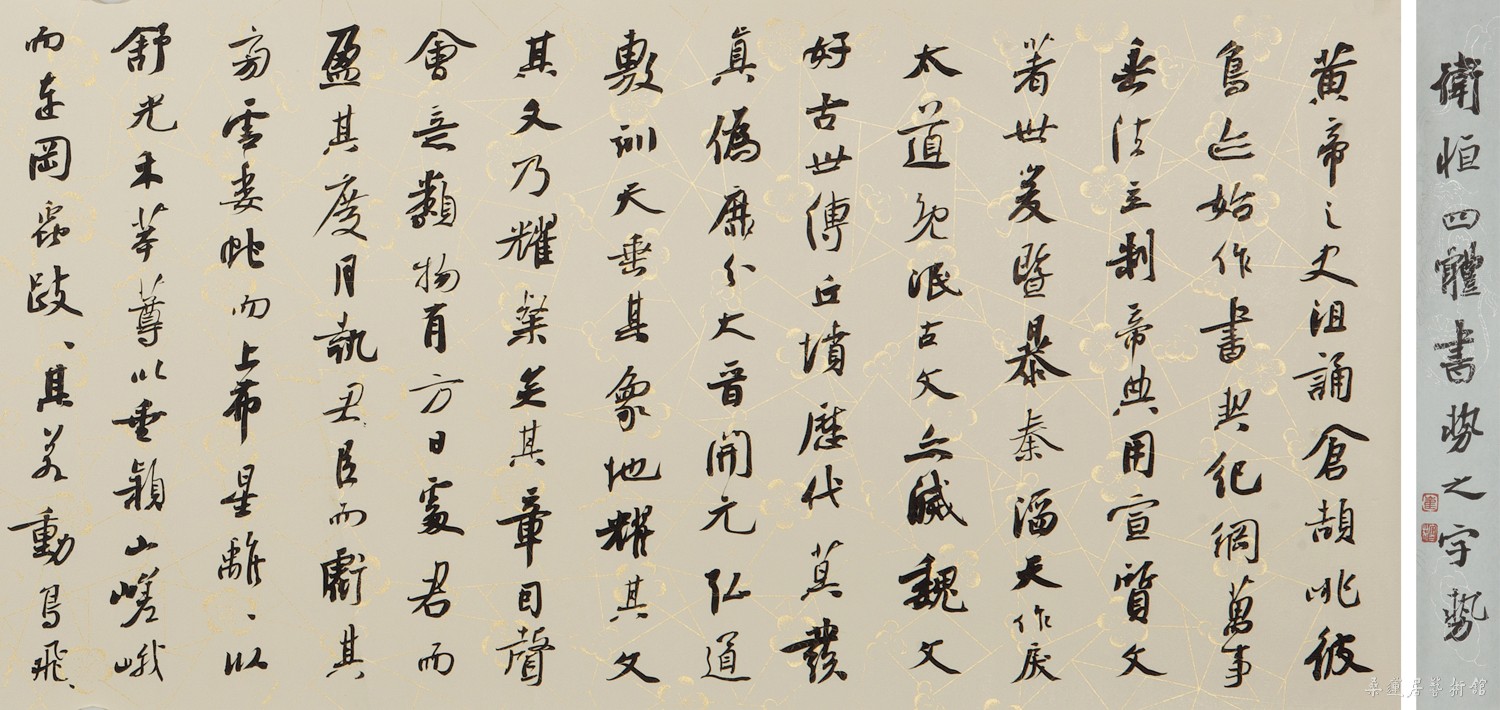 衛恒四體書勢之字勢
黃帝之史沮誦倉頡眺彼
鳥跡始作書契紀綱萬事
垂法立制帝典用宣質文
著世爰暨暴秦滔天作戾
太道既泯古文亦滅魏文
好古世傳丘墳歷代莫發
真偽靡分大晉開元弘道
敷訓天垂其象地耀其文
其文乃耀粲矣其章因聲
會意類物有方日處君而
盈其度月執臣而虧其
旁雲委蛇而上布星離、以
舒光禾苯䔿以垂穎山嵯峨
而連岡蟲跂、其若動鳥飛
桑蓮居藝術館